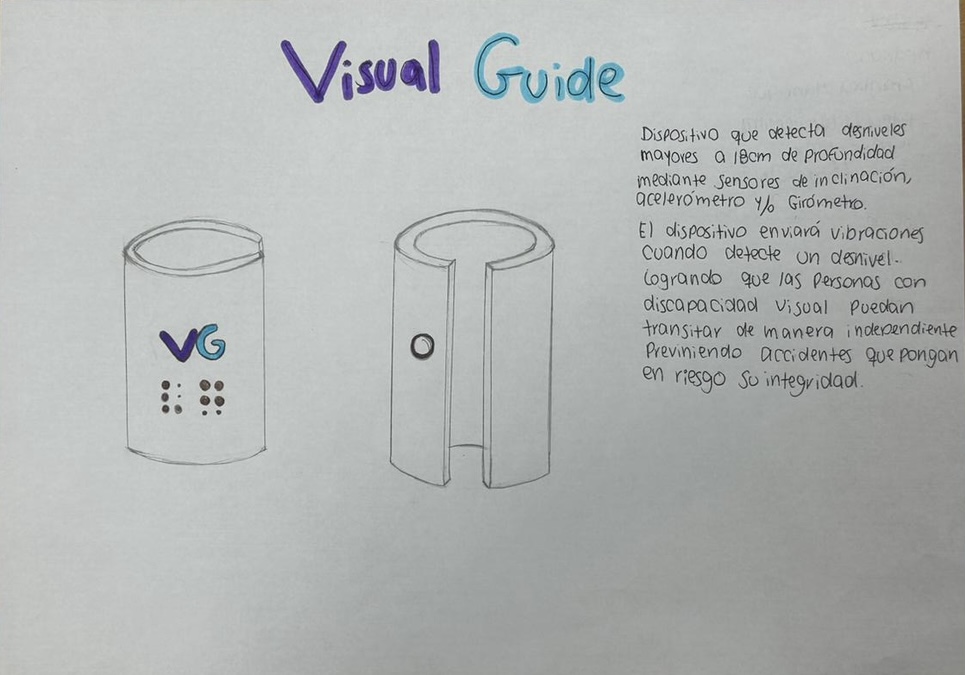 Visual Guide
Dispositivo que detecta desniveles
mayores a 18cm de profundidad
mediante sensores de inclinación,
acelerómetro y/o Girómetro.
El dispositivo enviará vibraciones
cuando detecte un desnivel.
Logrando que las personas con
discapacidad visual puedan
transitar de manera independiente
Previniendo accidentes que pongan
en riesgo su integridad.
VG
⠧ ⠛